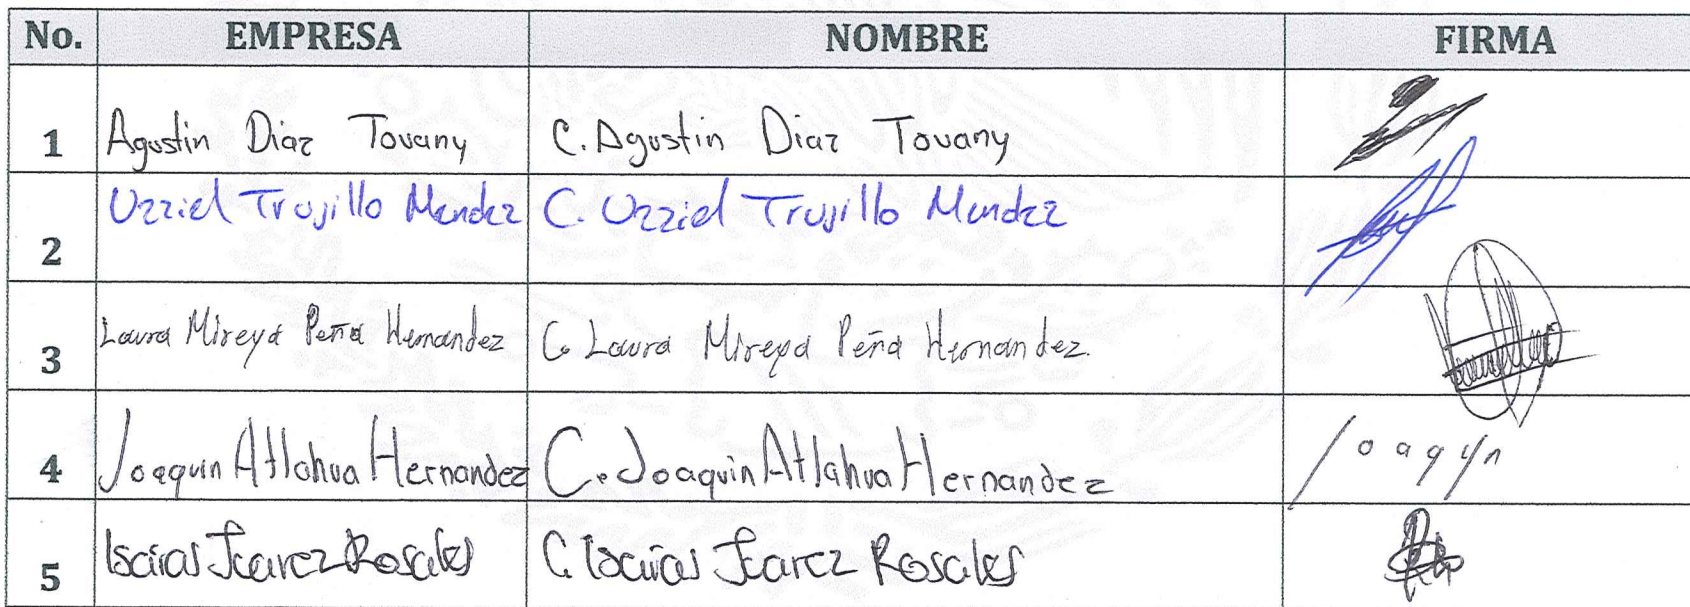 No. EMPRESA NOMBRE FIRMA
1 Agustin Diaz Tovany C. Agustin Diaz Tovany
2 Uzziel Trujillo Mendez C. Uzziel Trujillo Mendez
3 Laura Mireya Peña Hernandez C. Laura Mireya Peña Hernandez.
4 Joaquin Atlahua Hernandez C. Joaquin Atlahua Hernandez Joaquin
5 Isaias Juarez Rosales C. Isaias Juarez Rosales